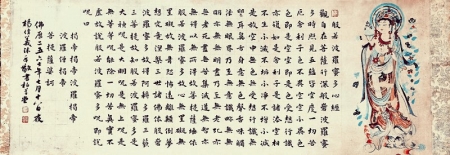 般若波羅蜜多心經
觀自在菩薩行深般若波羅蜜
多時照見五蘊皆空度一切苦
厄舍利子色不異空空不異色
色即是空空即是色受想行識
亦復如是舍利子是諸法空相
不生不滅不垢不淨不增不減
是故空中無色無受想行識無
眼耳鼻舌身意無色聲香味觸
法無眼界乃至無意識界無無
明亦無無明盡乃至無老死亦
無老死盡無苦集滅道無智亦
無得以無所得故菩提薩埵依
般若波羅蜜多故心無罣礙無
罣礙故無有恐怖遠離顛倒夢
想究竟涅槃三世諸佛依般若
波羅蜜多故得阿耨多羅三藐
三菩提故知般若波羅蜜多是
大神咒是大明咒是無上咒是
無等等咒能除一切苦真實不
虛故說般若波羅蜜多咒即說
咒曰
揭帝揭帝波羅揭帝
波羅僧揭帝
菩提薩婆訶
佛曆二五六年七月十八日夜
沐手敬書